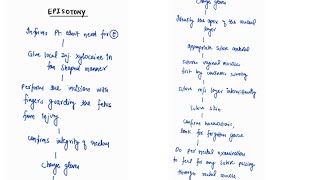 EPISOTOMY
Informs Pt about need for Ⓔ
Give local inj xylocaine in
fan shaped manner
Performs the incision with
fingers guarding the fetus
from injury
Confirms integrity of rectum
Change gloves
Change gloves
Identify the apex of the mucosal
layer
Appropriate suture material
Suture vaginal mucosa
first by continuous suturing
Suture m/s layer intermittently
Suture skin
Confirms haemostasis,
look for forgotten gauze
Do per rectal examination
to feel for any suture passing
through rectal mucosa